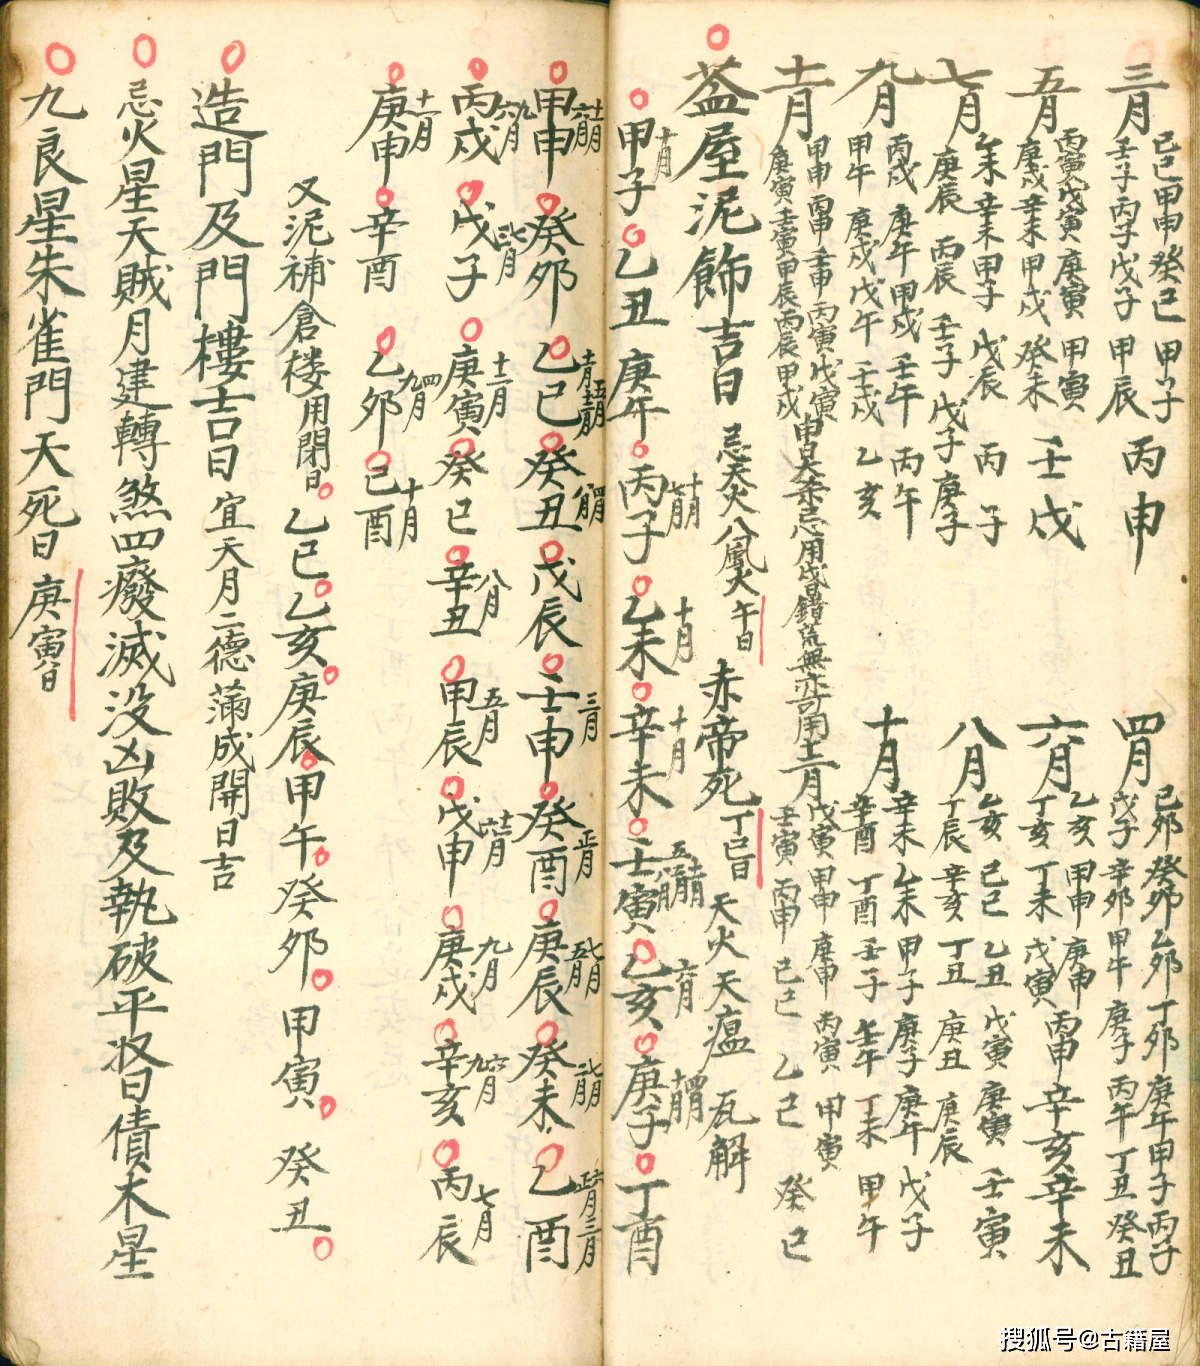 三月 己巳 甲申 癸巳 甲子 丙申
壬子 丙子 戊子 甲辰
四月 己夘 癸夘 乙夘 丁夘 庚午 甲子 丙子
戊子 辛夘 甲午 庚子 丙午 丁丑 癸丑
五月 丙寅 戊寅 庚寅 甲寅 壬戌
庚戌 辛未 甲戌 癸未
六月 乙亥 甲申 庚申 丙申 辛亥 辛未
丁亥 丁未 戊寅
七月 乙未 辛未 甲子 戊辰 丙子
庚辰 丙辰 壬子 戊子 庚子
八月 乙亥 己巳 乙丑 戊寅 庚寅 壬寅
丁辰 辛亥 丁丑 庚丑 庚辰
九月 丙戌 庚午 甲戌 壬午 丙午
甲午 庚戌 戊午 壬戌 乙亥
十月 辛未 乙未 甲子 庚子 庚午 戊子
辛酉 丁酉 壬子 壬午 丁未 甲午
十一月 甲申 丙申 壬申 丙寅 戊寅
庚寅 壬寅 甲辰 丙辰 甲戌
十二月 戊寅 甲申 庚申 丙寅 甲寅
壬寅 丙申 己巳 乙巳 癸巳
葢屋泥飾吉日 忌天火八風火午日 赤帝死丁巳日 天火天瘟瓦解
甲子 十月 乙丑 庚午 丙子 乙未 十月 辛未 十月 壬寅 乙亥 六月 庚子 丁酉
甲申 癸夘 乙巳 癸丑 戊辰 壬申 三月 癸酉 正月 庚辰 癸未 乙酉
丙戌 戊子 庚寅 十二月 癸巳 辛丑 八月 甲辰 五月 戊申 庚戌 九月 辛亥 六月 九月 丙辰 七月
庚申 十一月 辛酉 乙夘 四月 九月 己酉 十月
又泥補倉楼用閉日 乙巳 乙亥 庚辰 甲午 癸夘 甲寅 癸丑
造門及門樓吉日 宜天月二德滿成開日吉
忌火星天賊月建轉煞四廢滅没凶敗及執破平收日債木星
九良星朱雀門天死日 庚寅日
搜狐号@古籍屋